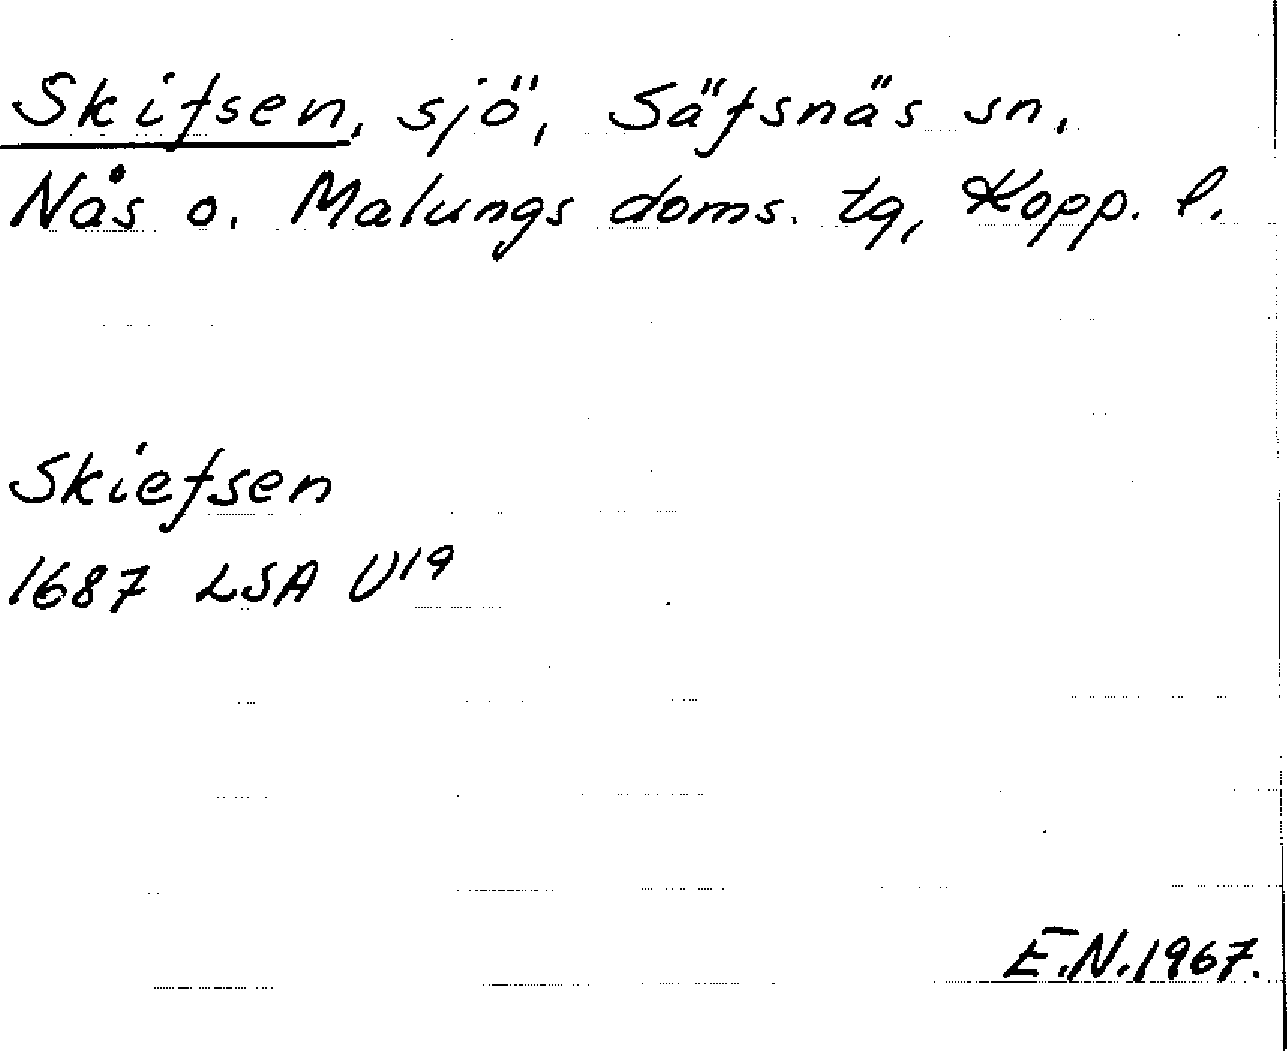 Skifsen, sjö, Säfsnäs sn.
Nås o. Malungs doms. tg, Kopp. l.
Skiefsen
1687 LSA U19
E.N.1967.